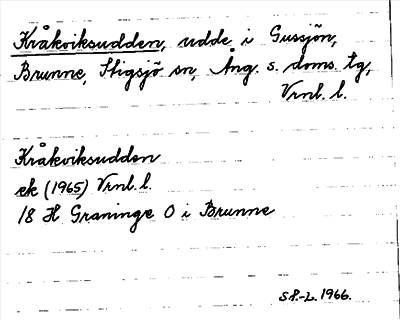 Kråkviksudden, udde i Gussjön,
Brunne, Stigsjö sn, Ång. s. doms. tg,
Vrnl. l.
Kråkviksudden
ek (1965) Vrnl. l.
18 H Graninge O i Brunne
S.P.-L. 1966.